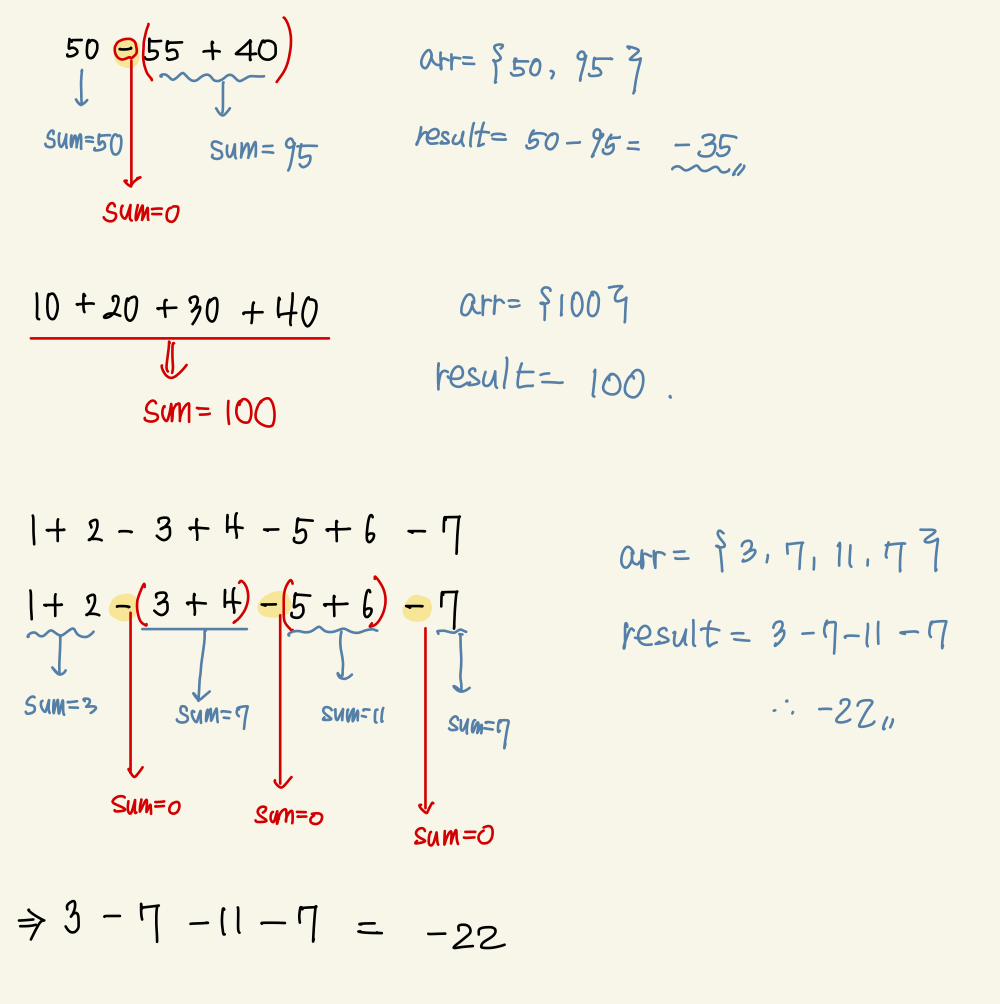 50 - (55 + 40)
sum=50
sum= 95
sum=0
arr= {50, 95}
result= 50 - 95 = -35〃
10 + 20 + 30 + 40
sum= 100
arr= {100}
result= 100.
1 + 2 - 3 + 4 - 5 + 6 - 7
1 + 2 - (3 + 4) - (5 + 6) - 7
sum=3
sum=7
sum=11
sum=7
sum=0
sum=0
sum=0
arr= {3, 7, 11, 7}
result= 3 - 7 - 11 - 7
∴ -22〃
⇒ 3 - 7 - 11 - 7 = -22